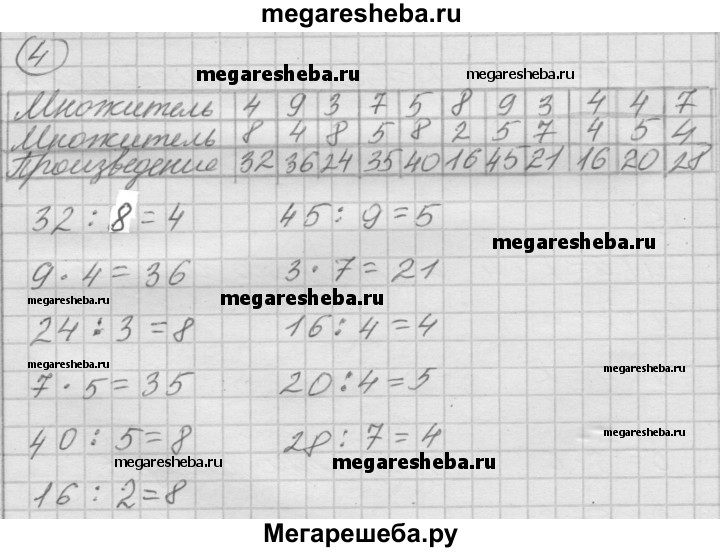 megaresheba.ru
4
megaresheba.ru megaresheba.ru
Множитель 4 9 3 7 5 8 9 3 4 4 7
Множитель 8 4 8 5 8 2 5 7 4 5 4
Произведение 32 36 24 35 40 16 45 21 16 20 28
32 : 8 = 4 45 : 9 = 5
megaresheba.ru
9 · 4 = 36 3 · 7 = 21
megaresheba.ru megaresheba.ru
24 : 3 = 8 16 : 4 = 4
megaresheba.ru megaresheba.ru
7 · 5 = 35 20 : 4 = 5
megaresheba.ru
40 : 5 = 8 28 : 7 = 4
megaresheba.ru megaresheba.ru
16 : 2 = 8
Мегарешеба.ру